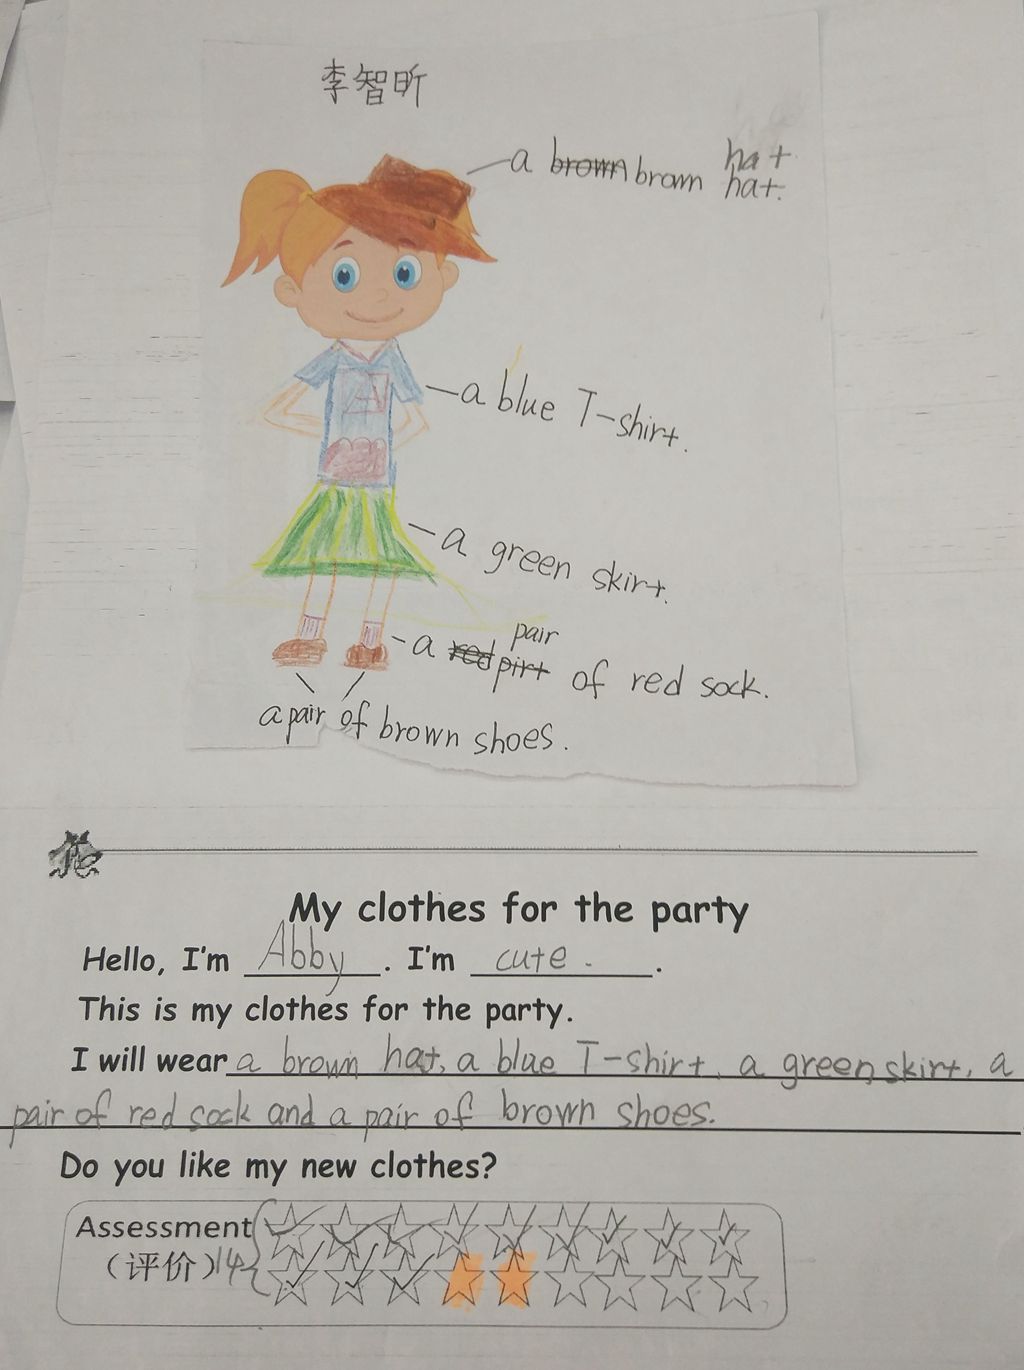 李智昕
a brown brown hat
hat.
a blue T-shirt.
a green skirt.
pair
a red pirt of red sock.
a pair of brown shoes.
My clothes for the party
Hello, I'm Abby. I'm cute.
This is my clothes for the party.
I will wear a brown hat, a blue T-shirt, a green skirt, a
pair of red sock and a pair of brown shoes.
Do you like my new clothes?
Assessment
(评价) 14